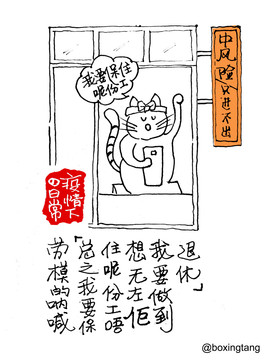 中风险只进不出
我要保住
呢份工
疫情下
の日常
劳模的呐喊
「总之我要保
住呢份工唔
想无左佢
我要做到
退休」
@boxingtang